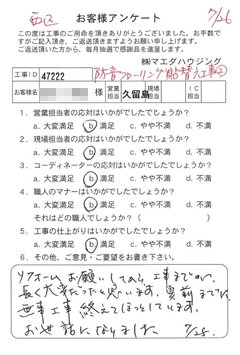 西区 お客様アンケート 7/26
この度は工事のご用命を頂きありがとうございました。お手数で
すがご記入頂き、ご返送頂きますようお願い申し上げます。
ご返送頂いた方から、毎月抽選で感謝品を進呈します。
㈱マエダハウジング
工事ID 47222 防音フローリング貼替工事②
お客様名 様 営業担当 久留島 現場担当 IC担当
1. 営業担当者の応対はいかがでしたでしょうか?
a. 大変満足 b. 満足 c. やや不満 d. 不満
2. 現場担当者の応対はいかがでしたでしょうか?
a. 大変満足 b. 満足 c. やや不満 d. 不満
3. コーディネーターの応対はいかがでしたでしょうか?
a. 大変満足 b. 満足 c. やや不満 d. 不満
4. 職人のマナーはいかがでしたでしょうか?
a. 大変満足 b. 満足 c. やや不満 d. 不満
それはどの職人でしょうか? ( )
5. 工事の仕上がりはいかがでしたでしょうか?
a. 大変満足 b. 満足 c. やや不満 d. 不満
6. その他、ご意見・ご要望をお書き下さい。
リフォームお願いしてから、工事までが
長く大変だったと思います。
無事工事終えてほっとしています。
お世話になりました 7/25.